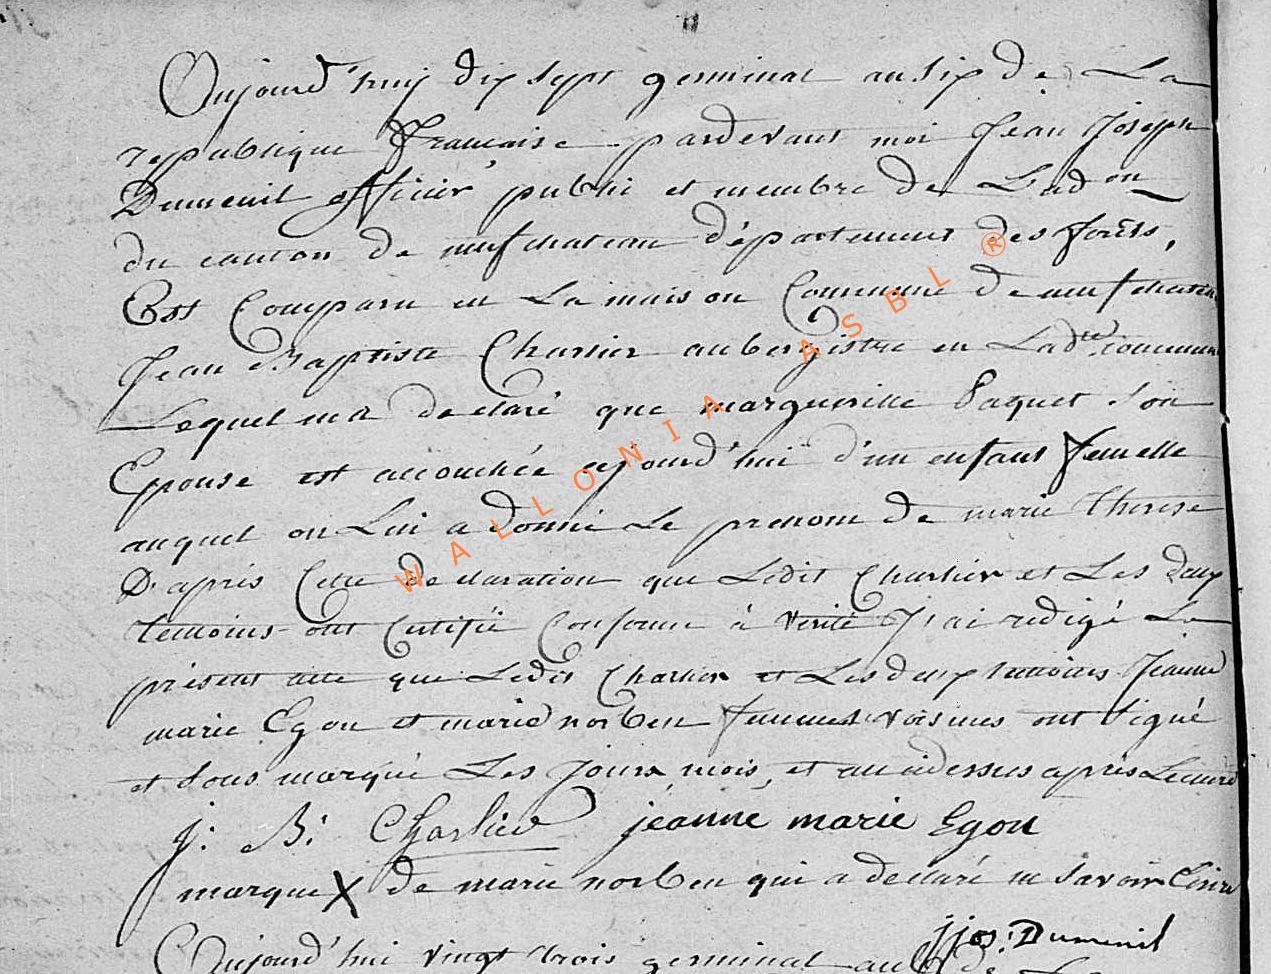 Oujourd'huij dix sept germinal an six de La
republique francaise pardevant moi Jean Joseph
Dumenil officier public et membre de L'ad on
du canton de neufchateau département des forêts,
Est Comparu en La maison Commune de neufchateau
Jean Baptiste Charlier aubergistre en Ladte commune
Lequel ma declaré que margueritte Paquet son
Epouse est accouchée ajourd'hui d'un enfant femelle
auquel on Lui a donné Le prenom de marie therese
D'après Cette declaration que Ledit Charlier et Les deux
temoins ont Certifié Conforme à verité J'ai redigé La
présent acte que Ledit Charlier et Les deux temoins Jeanne
marie Egon et marie norben femmes voisines ont signé
et sous marqué Les Jours mois, et an cidessus après Lecture
j: B: Charlier jéanne marie Egon
marque X de marie norben qui a declaré ne savoir Ecrire
jjos: Dumenil
Oujourd'hui vingt trois germinal an 6 de La
WALLONIA ASBL ®